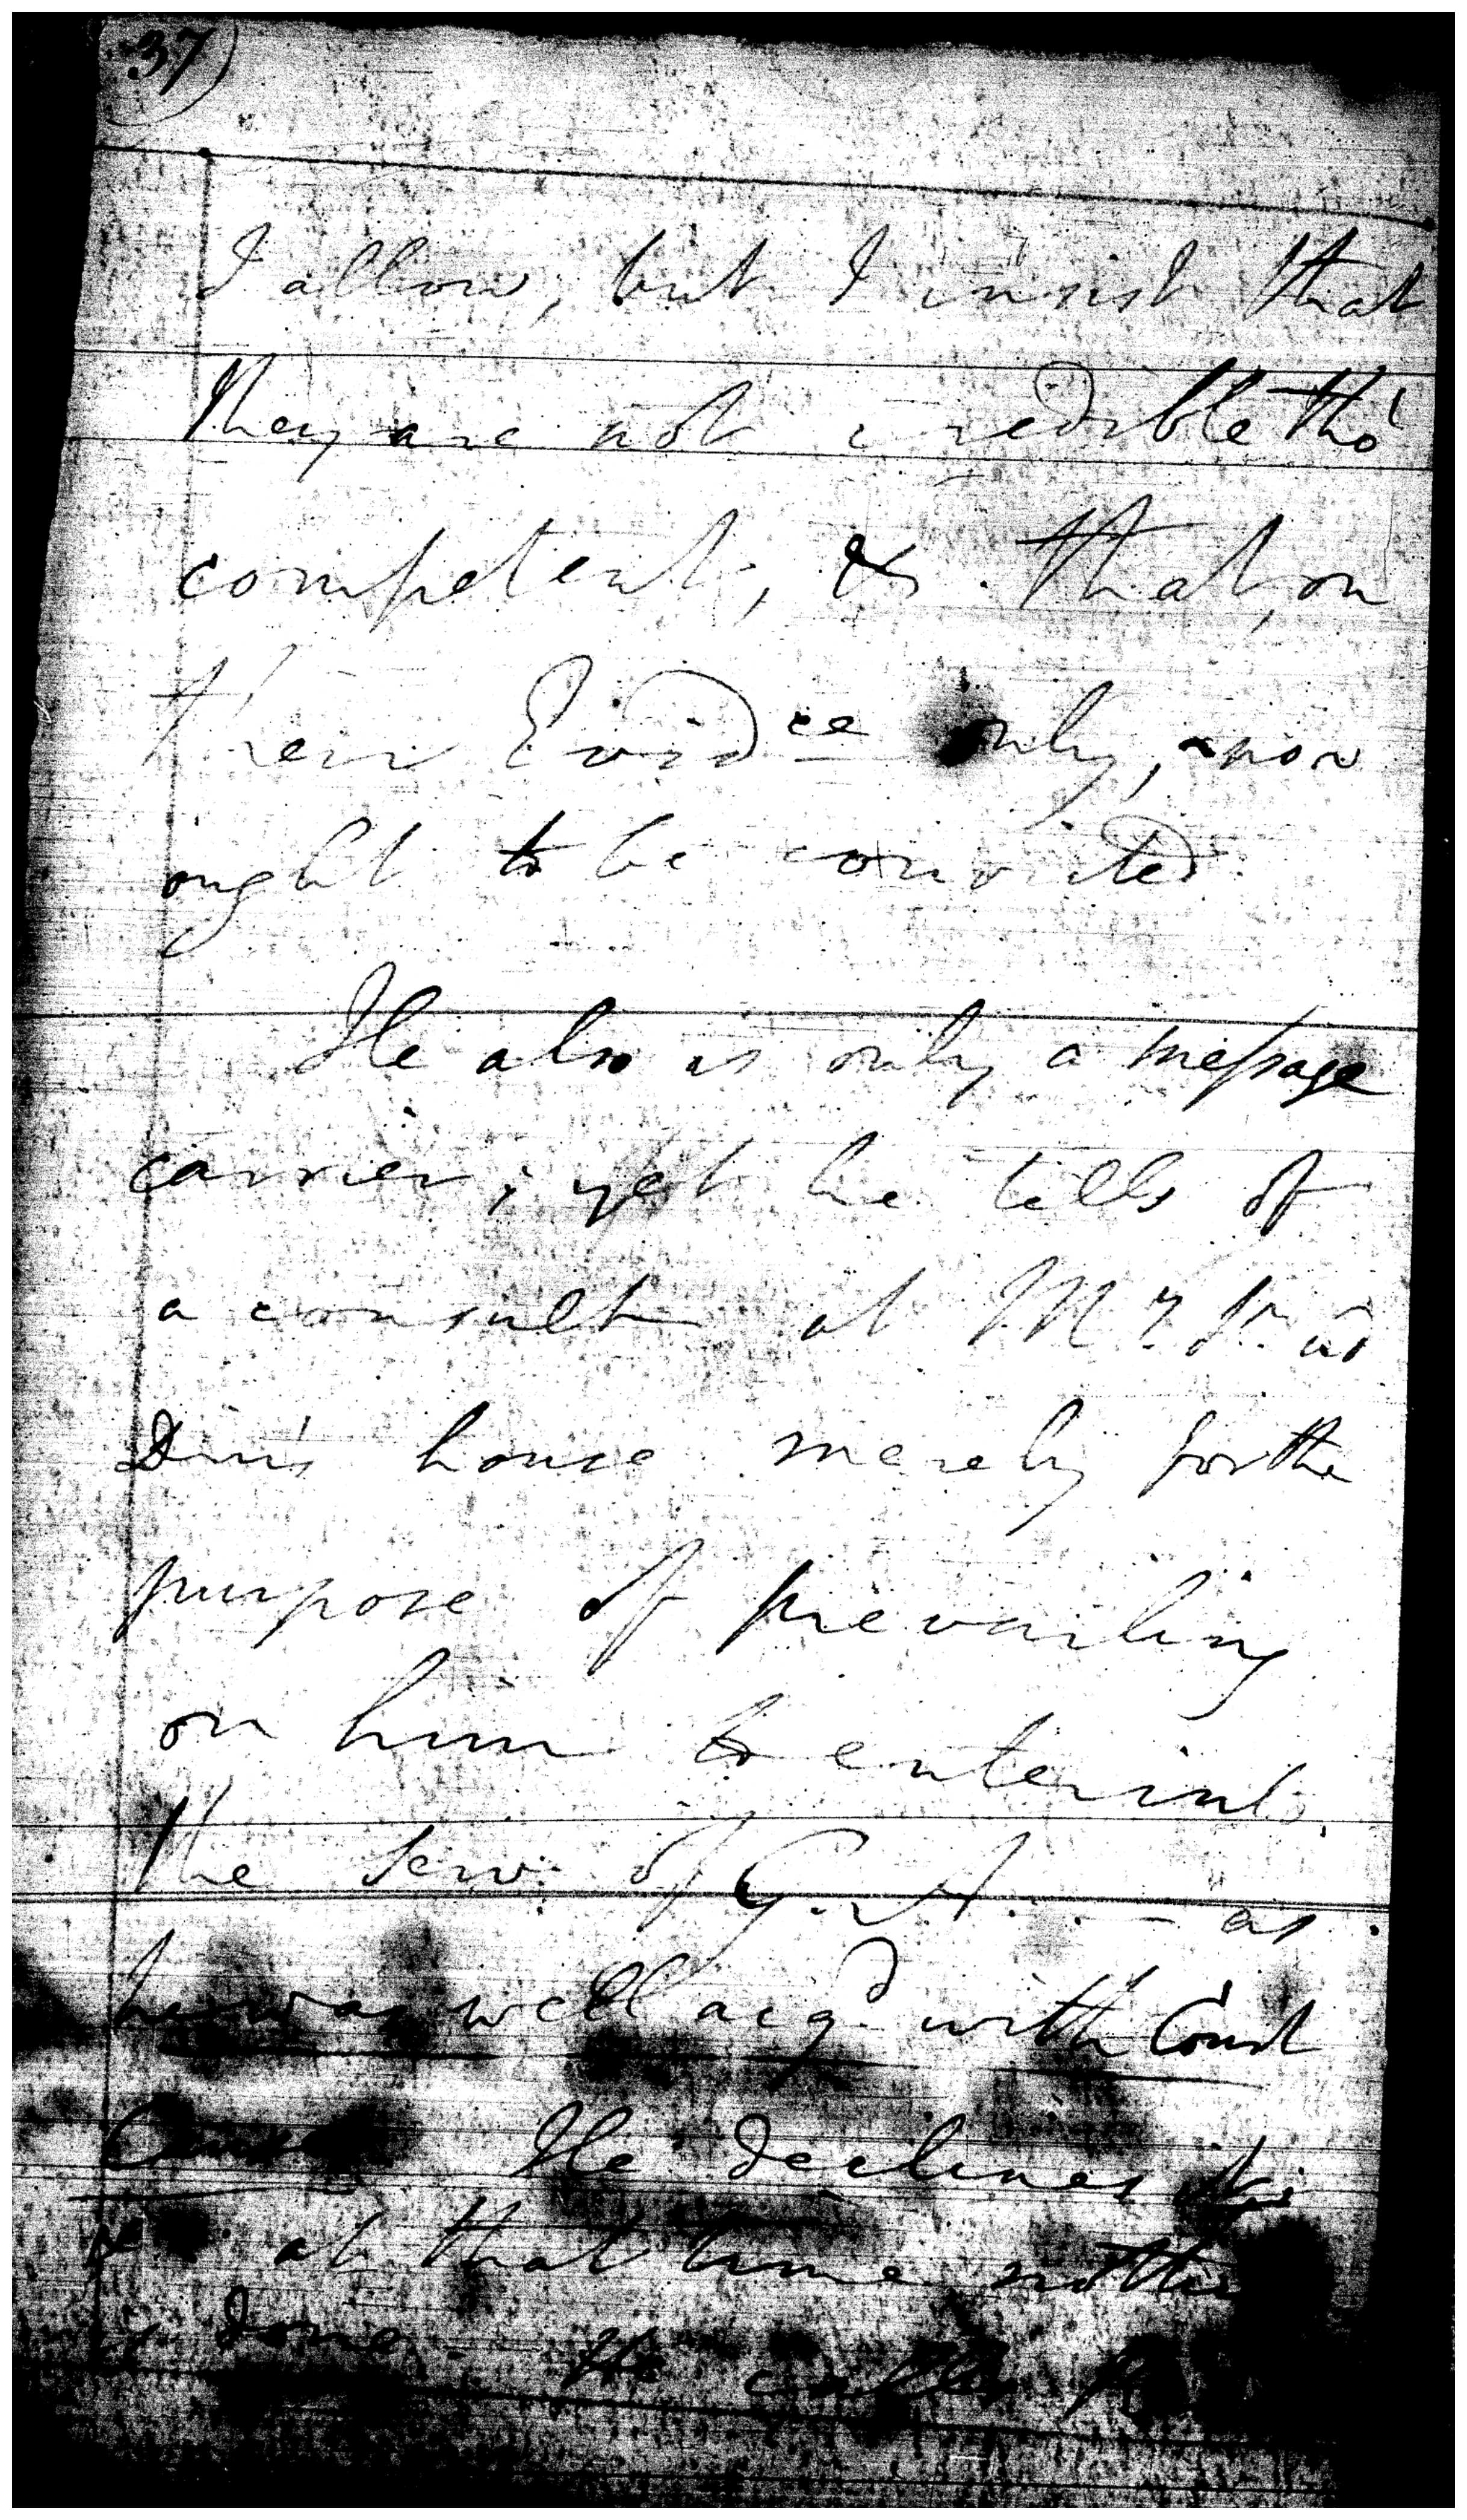 37)
I allow, but I insist that
they are not credible tho'
competent, & that, on
their Evid^ce only, non
ought to be convicted.
He also is only a message
carrier; yet he tells of
a consult at M^r
house merely for the
purpose of prevailing
on him to enter into
the Serv: of G. A. — as
he was well acq^d with Coun^t
He declines
& at that time nothing
is done. He calls